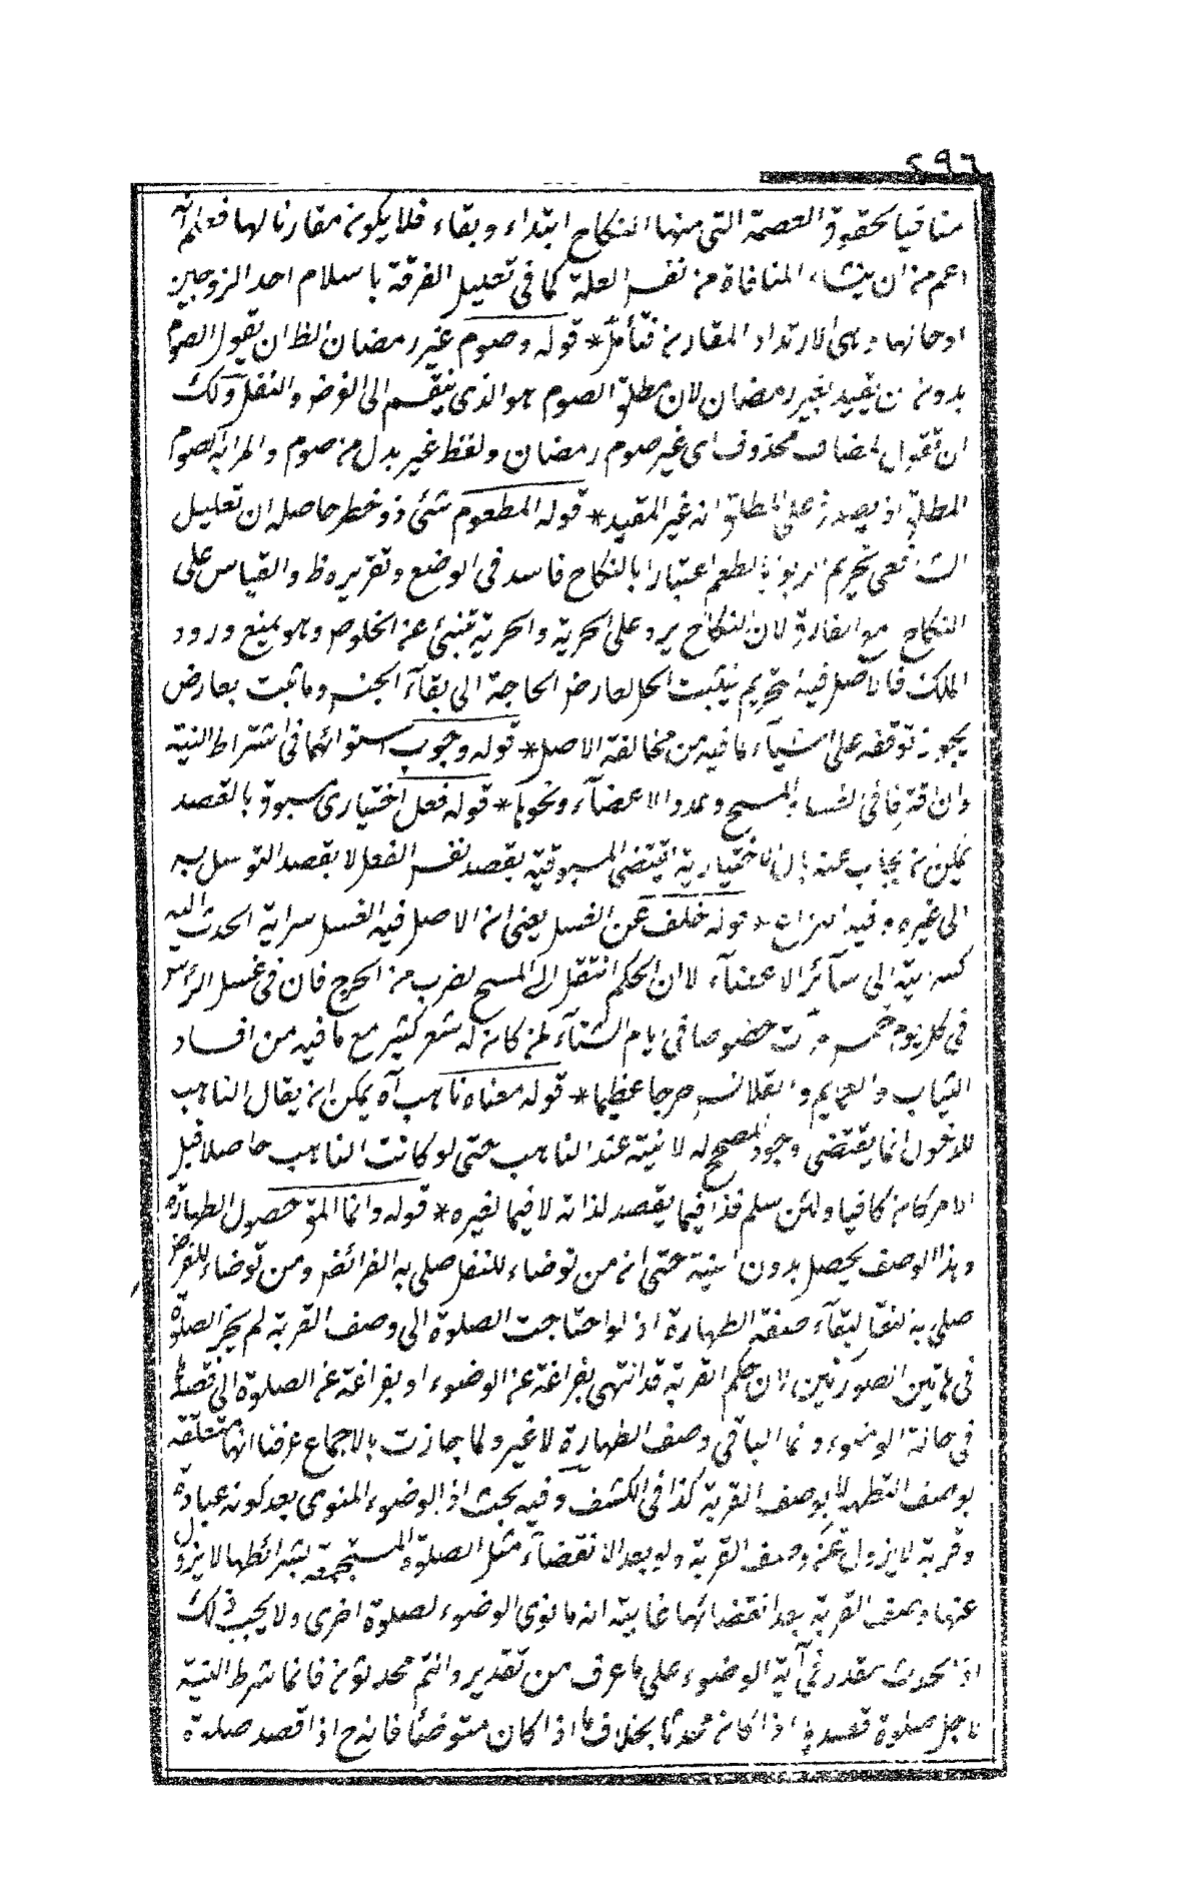 ٢٩٦
منافيا لحقوق العصمة التى منها النكاح ابتداء وبقاء فلا يكون مقارنا لها فعلم انه
اعم من ان ينشاء المنافاة من نفس العلة كما فى تعليل الفرقة باسلام احد الزوجين
او حالها وهى الارتداد المقارن فتأمل * قوله وصوم غير رمضان الظ ان يقول الصوم
بدون تقييد بغير رمضان لان مطلق الصوم هو الذى ينقسم الى الفرض والنفل ولك
ان تقول المضاف محذوف اى غير صوم رمضان ولفظ غير بدل من صوم والمراد الصوم
المطلق اذ يصدق على المطلق انه غير المقيد * قوله المطعوم شئ ذو خطر حاصله ان تعليل
الشافعى تحريم الربوا بالطعم اعتبارا بالنكاح فاسد فى الوضع وتقريره ظ والقياس على
النكاح مع الفارق لان النكاح يرد على الحرية والحرية تنبئ عن الخلوص وهو يمنع ورود
الملك فالاصل فيه تحريم فيثبت الحل لعارض الحاجة الى بقاء الجنس وما ثبت بعارض
يجوز توقفه على اشياء لما فيه من مخالفة الاصل * قوله وجوب استوائهما فى اشتراط النية
وان افترقا فى الغسل والمسح وعدد الاعضاء ونحوها * قوله فعل اختيارى مسبوق بالقصد
يمكن ان يجاب عنه بان الاختيارية يقتضى المسبوقية بقصد نفس الفعل لا بقصد التوسل به
الى غيره وفيه النزاع * قوله خلف عن الغسل يعنى ان الاصل فيه الغسل سراية الحدث اليه
كسرايته الى سآئر الاعضآء الا ان الحكم انتقل الى المسح لضرب من الحرج فان فى غسل الرأس
فى كل يوم خمس مرات خصوصا فى ايام الشتآء لمن كان له شعر كثير مع ما فيه من افساد
الثياب والعمايم والقلانس حرجا عظيما * قوله معناه تاهب اه يمكن ان يقال التاهب
للدخول انما يقتضى وجود المصحح له لا نيته عند التاهب حتى لو كانت التاهب حاصلا قبل
الامر كان كافيا ولئن سلم فذا فيما يقصد لذاته لا فيما لغيره * قوله وانما المقـ حصول الطهارة
وهذا الوصف يحصل بدون النية حتى ان من توضاء للنفل صلى به الفرائض ومن توضاء للفرض
صلى به النفل لبقآء صفة الطهارة اذ لو احتاجت الصلوة الى وصف القربة لم يجز الصلوة
فى هاتين الصورتين لان حكم القربة قد انتهى بفراغه عن الوضوء او بفراغه عن الصلوة التى قصدها
فى حالة الوضوء وانما الباقى وصف الطهارة لا غير ولما جازت بالاجماع عرفنا انها متعلقة
بوصف التطهر لا بوصف القربة كذا فى الكشف وفيه بحث اذ الوضوء المنوى بعد كونه عبادة
وقربة لا يزول عنه وصف القربة ولو بعد الانقضآء مثل الصلوة المستجمعة بشرائطها لا يزول
عنها وصف القربة بعد انقضائها غايته انه ما نوى الوضوء لصلوة اخرى ولا يجب ذلك
اذ الحدث مقدر فى آية الوضوء على ما عرف من تقدير وانتم محدثون فانما شرط النية
لاجل صلوة قصدها اذا كان محدثا بخلاف ما اذا كان متوضئا فانه ح اذا قصد صلوة